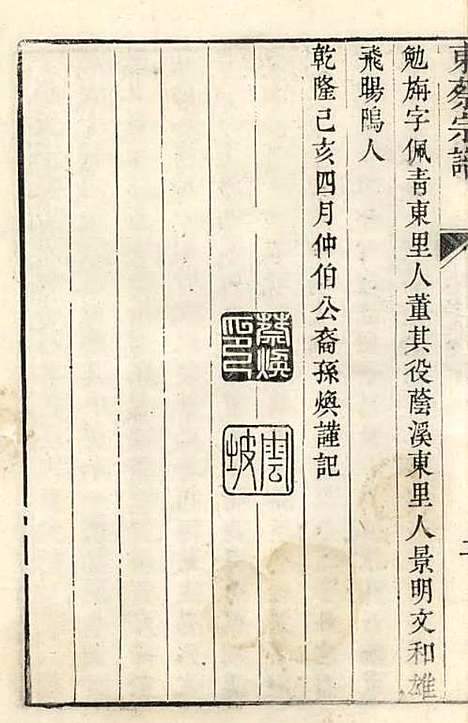 東蔡宗譜
勉旃字佩青東里人董其役蔭溪東里人景明文和雄
飛暘隝人
乾隆己亥四月仲伯公裔孫煥謹記
蔡煥之印
雲坡